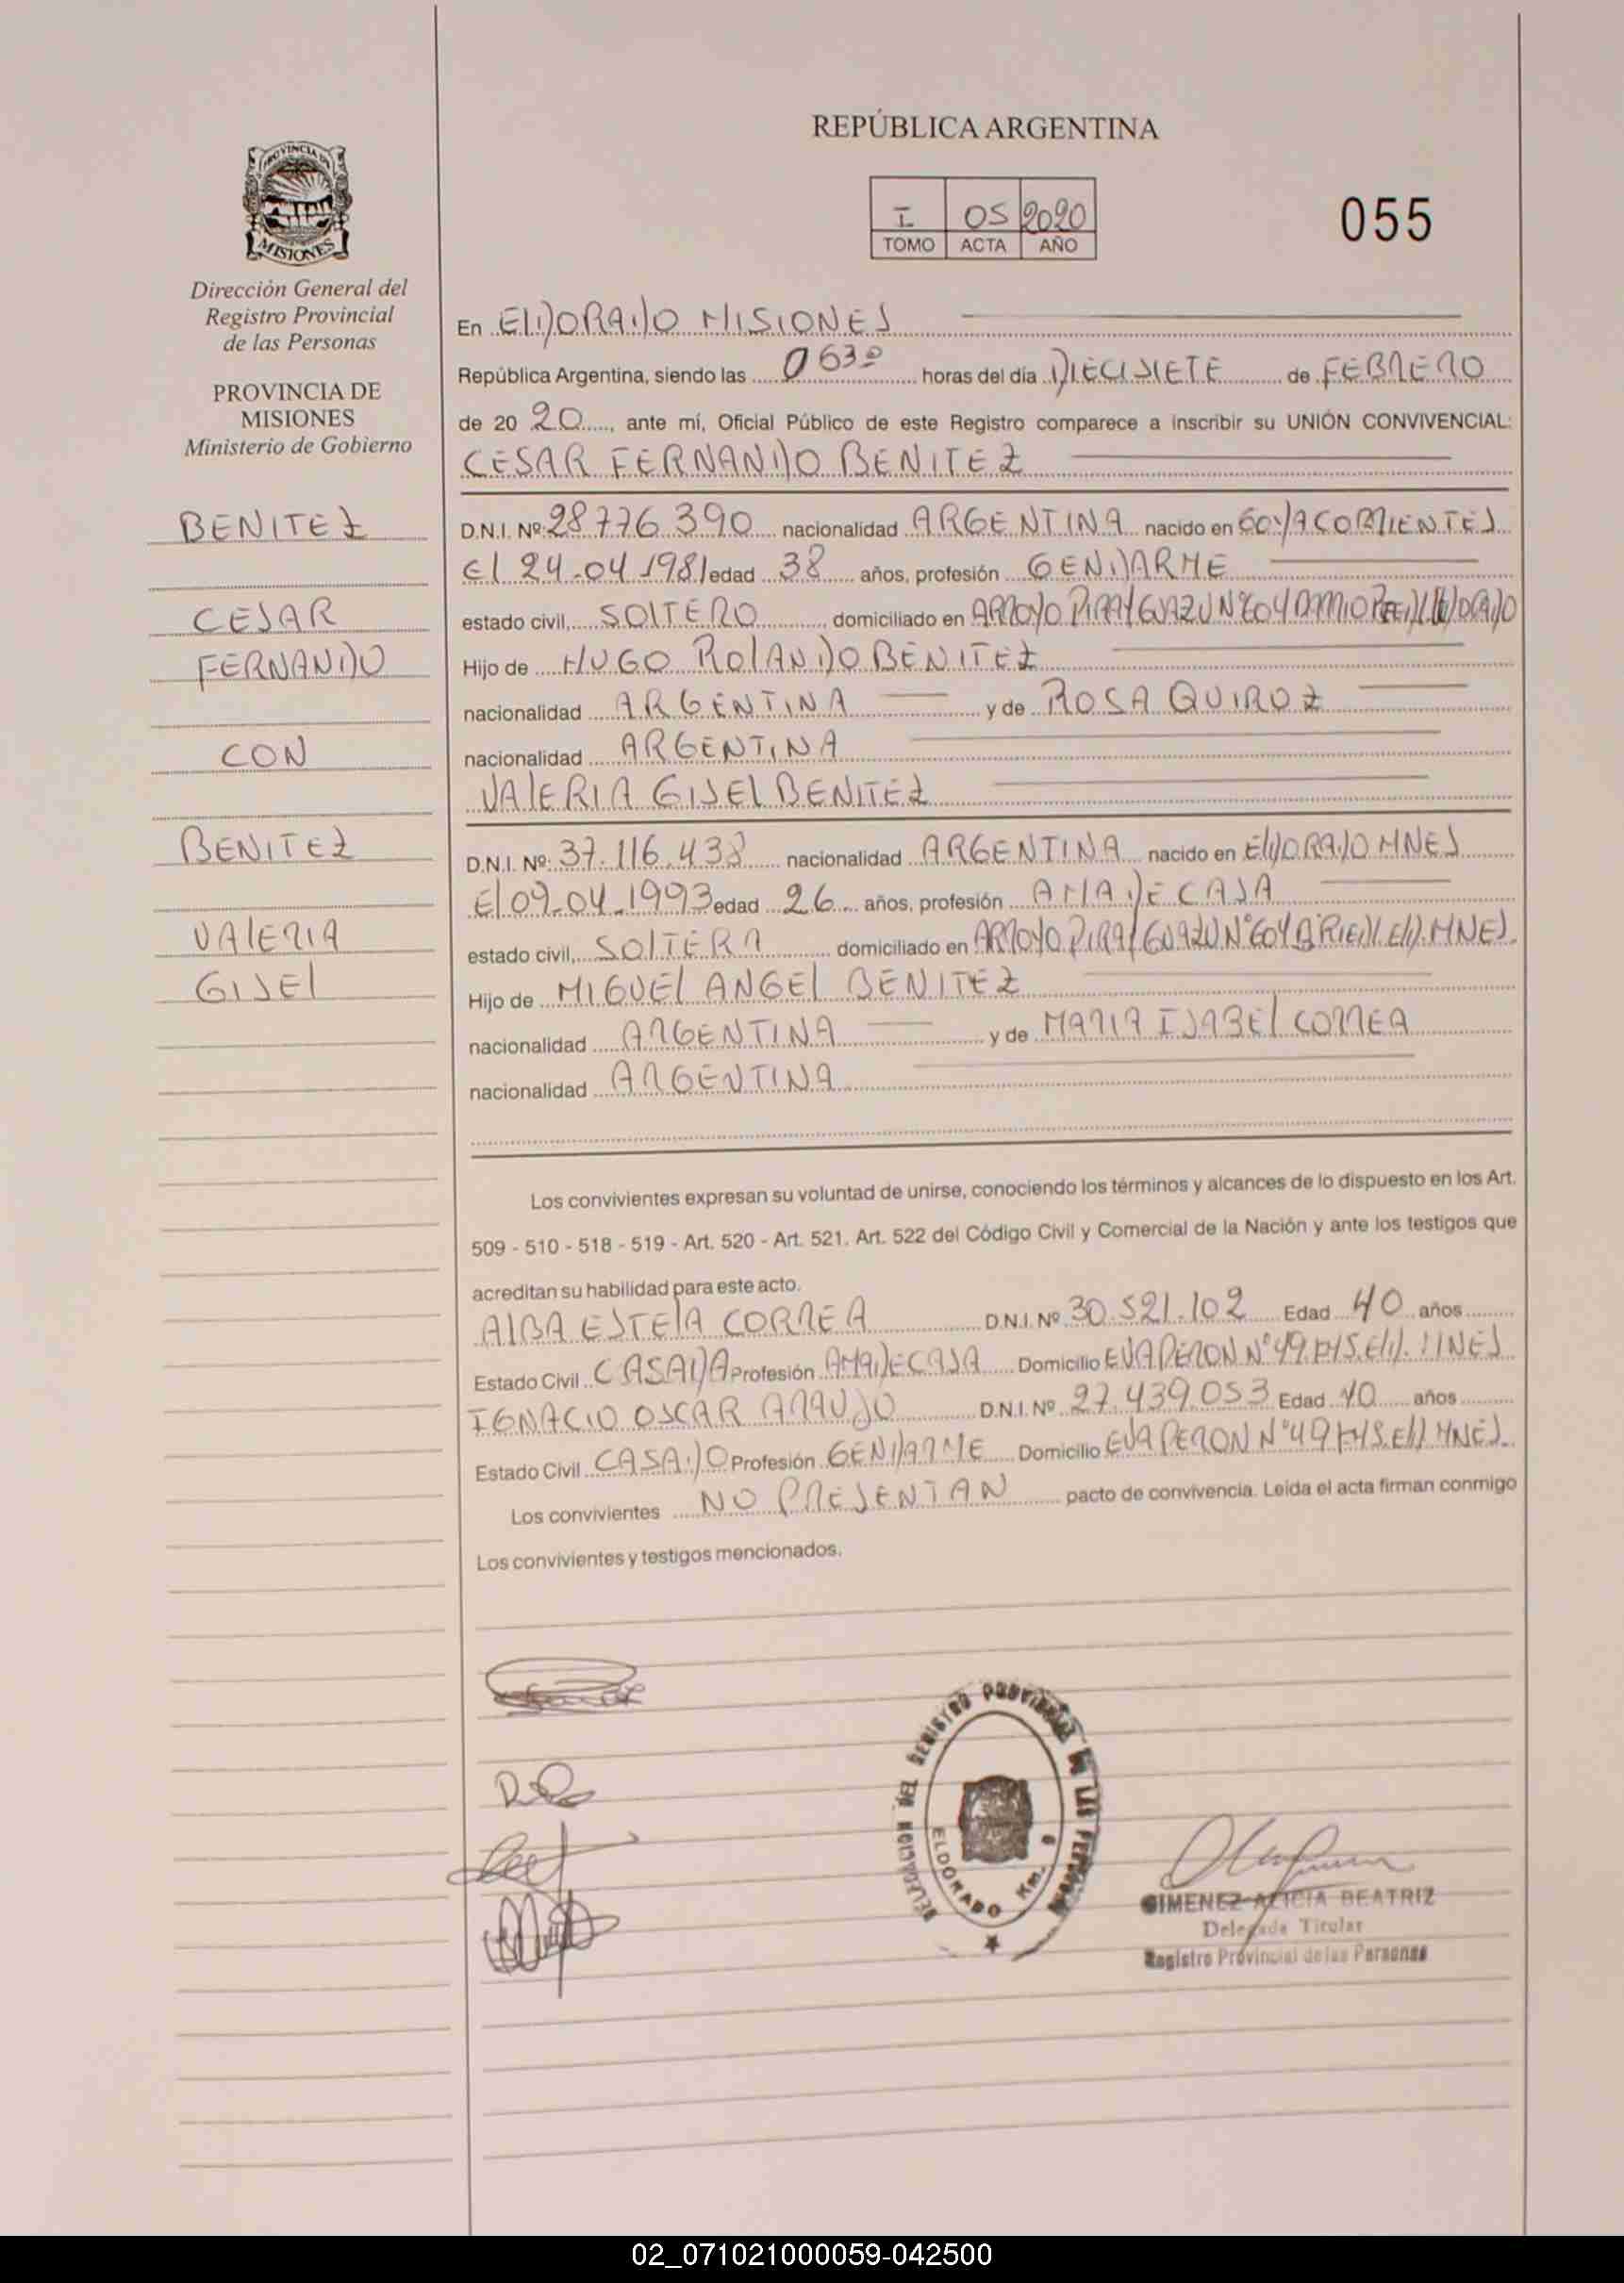 REPÚBLICA ARGENTINA
I 05 2020
TOMO ACTA AÑO
055
PROVINCIA DE
MISIONES
Dirección General del
Registro Provincial
de las Personas
PROVINCIA DE
MISIONES
Ministerio de Gobierno
BENITEZ
CESAR
FERNANDO
CON
BENITEZ
VALERIA
GISEL
En ELDORADO MISIONES
República Argentina, siendo las 0630 horas del día DIECISIETE de FEBRERO
de 20 20, ante mí, Oficial Público de este Registro comparece a inscribir su UNIÓN CONVIVENCIAL:
CESAR FERNANDO BENITEZ
D.N.I. Nº: 28.776.390 nacionalidad ARGENTINA nacido en GOYA CORRIENTES
El 24-04-1981 edad 38 años, profesión GENDARME
estado civil, SOLTERO domiciliado en ARROYO PIRAY GUAZU Nº 604 BARRIO ELDORADO
Hijo de HUGO ROLANDO BENITEZ
nacionalidad ARGENTINA y de ROSA QUIROZ
nacionalidad ARGENTINA
VALERIA GISEL BENITEZ
D.N.I. Nº: 37.116.438 nacionalidad ARGENTINA nacido en ELDORADO MNES
El 09-04-1993 edad 26 años, profesión AMA DE CASA
estado civil, SOLTERA domiciliado en ARROYO PIRAY GUAZU Nº 604 MNES.
Hijo de MIGUEL ANGEL BENITEZ
nacionalidad ARGENTINA y de MARIA ISABEL CORREA
nacionalidad ARGENTINA
Los convivientes expresan su voluntad de unirse, conociendo los términos y alcances de lo dispuesto en los Art.
509 - 510 - 518 - 519 - Art. 520 - Art. 521. Art. 522 del Código Civil y Comercial de la Nación y ante los testigos que
acreditan su habilidad para este acto.
ALBA ESTELA CORREA D.N.I. Nº 30.521.102 Edad 40 años
Estado Civil CASADA Profesión AMA DE CASA Domicilio EVA PERON Nº 49 MNES
IGNACIO OSCAR ARAUJO D.N.I. Nº 27.439.053 Edad 40 años
Estado Civil CASADO Profesión GENDARME Domicilio EVA PERON Nº 49 MNES.
Los convivientes NO PRESENTAN pacto de convivencia. Leida el acta firman conmigo
Los convivientes y testigos mencionados.
DELEGACION DEL REGISTRO PROVINCIAL DE LAS PERSONAS
ELDORADO Km. 9
GIMENEZ ALICIA BEATRIZ
Delegada Titular
Registro Provincial de las Personas
02_071021000059-042500